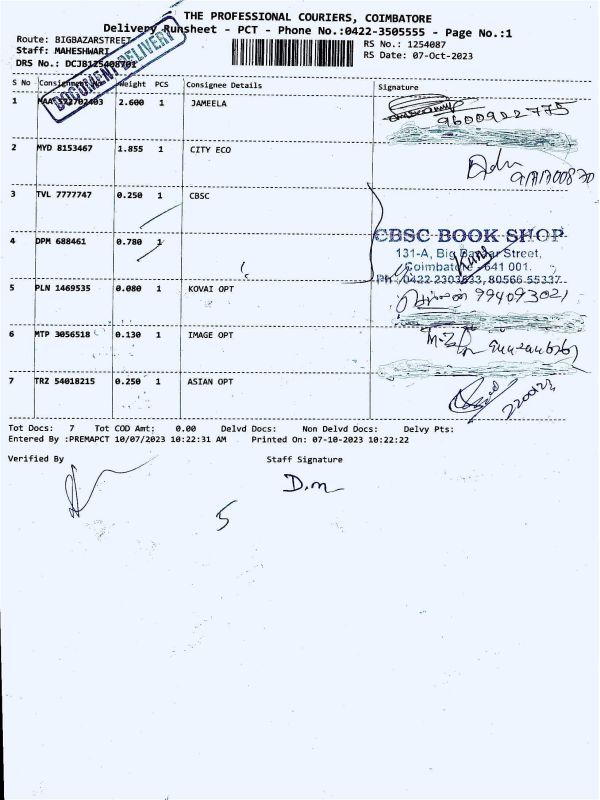 THE PROFESSIONAL COURIERS, COIMBATORE
Delivery Runsheet - PCT - Phone No.:0422-3505555 - Page No.:1
Route: BIGBAZARSTREET
RS No.: 1254087
Staff: MAHESHWARI
RS Date: 07-Oct-2023
DRS No.: DCJB125408701
DOCUMENT DELIVERY
S No Consignment No Weight PCS Consignee Details Signature
1 2.600 1 JAMEELA
9600922775
2 MYD 8153467 1.855 1 CITY ECO
3 TVL 7777747 0.250 1 CBSC
CBSC BOOK SHOP
131-A, Big Bazaar Street,
Coimbatore - 641 001.
Ph : 0422 2303633, 80566 55337
4 DPM 688461 0.780 1
5 PLN 1469535 0.080 1 KOVAI OPT
994093021
6 MTP 3056518 0.130 1 IMAGE OPT
7 TRZ 54018215 0.250 1 ASIAN OPT
Tot Docs: 7 Tot COD Amt: 0.00 Delvd Docs: Non Delvd Docs: Delvy Pts:
Entered By :PREMAPCT 10/07/2023 10:22:31 AM Printed On: 07-10-2023 10:22:22
Verified By Staff Signature
D.m
5